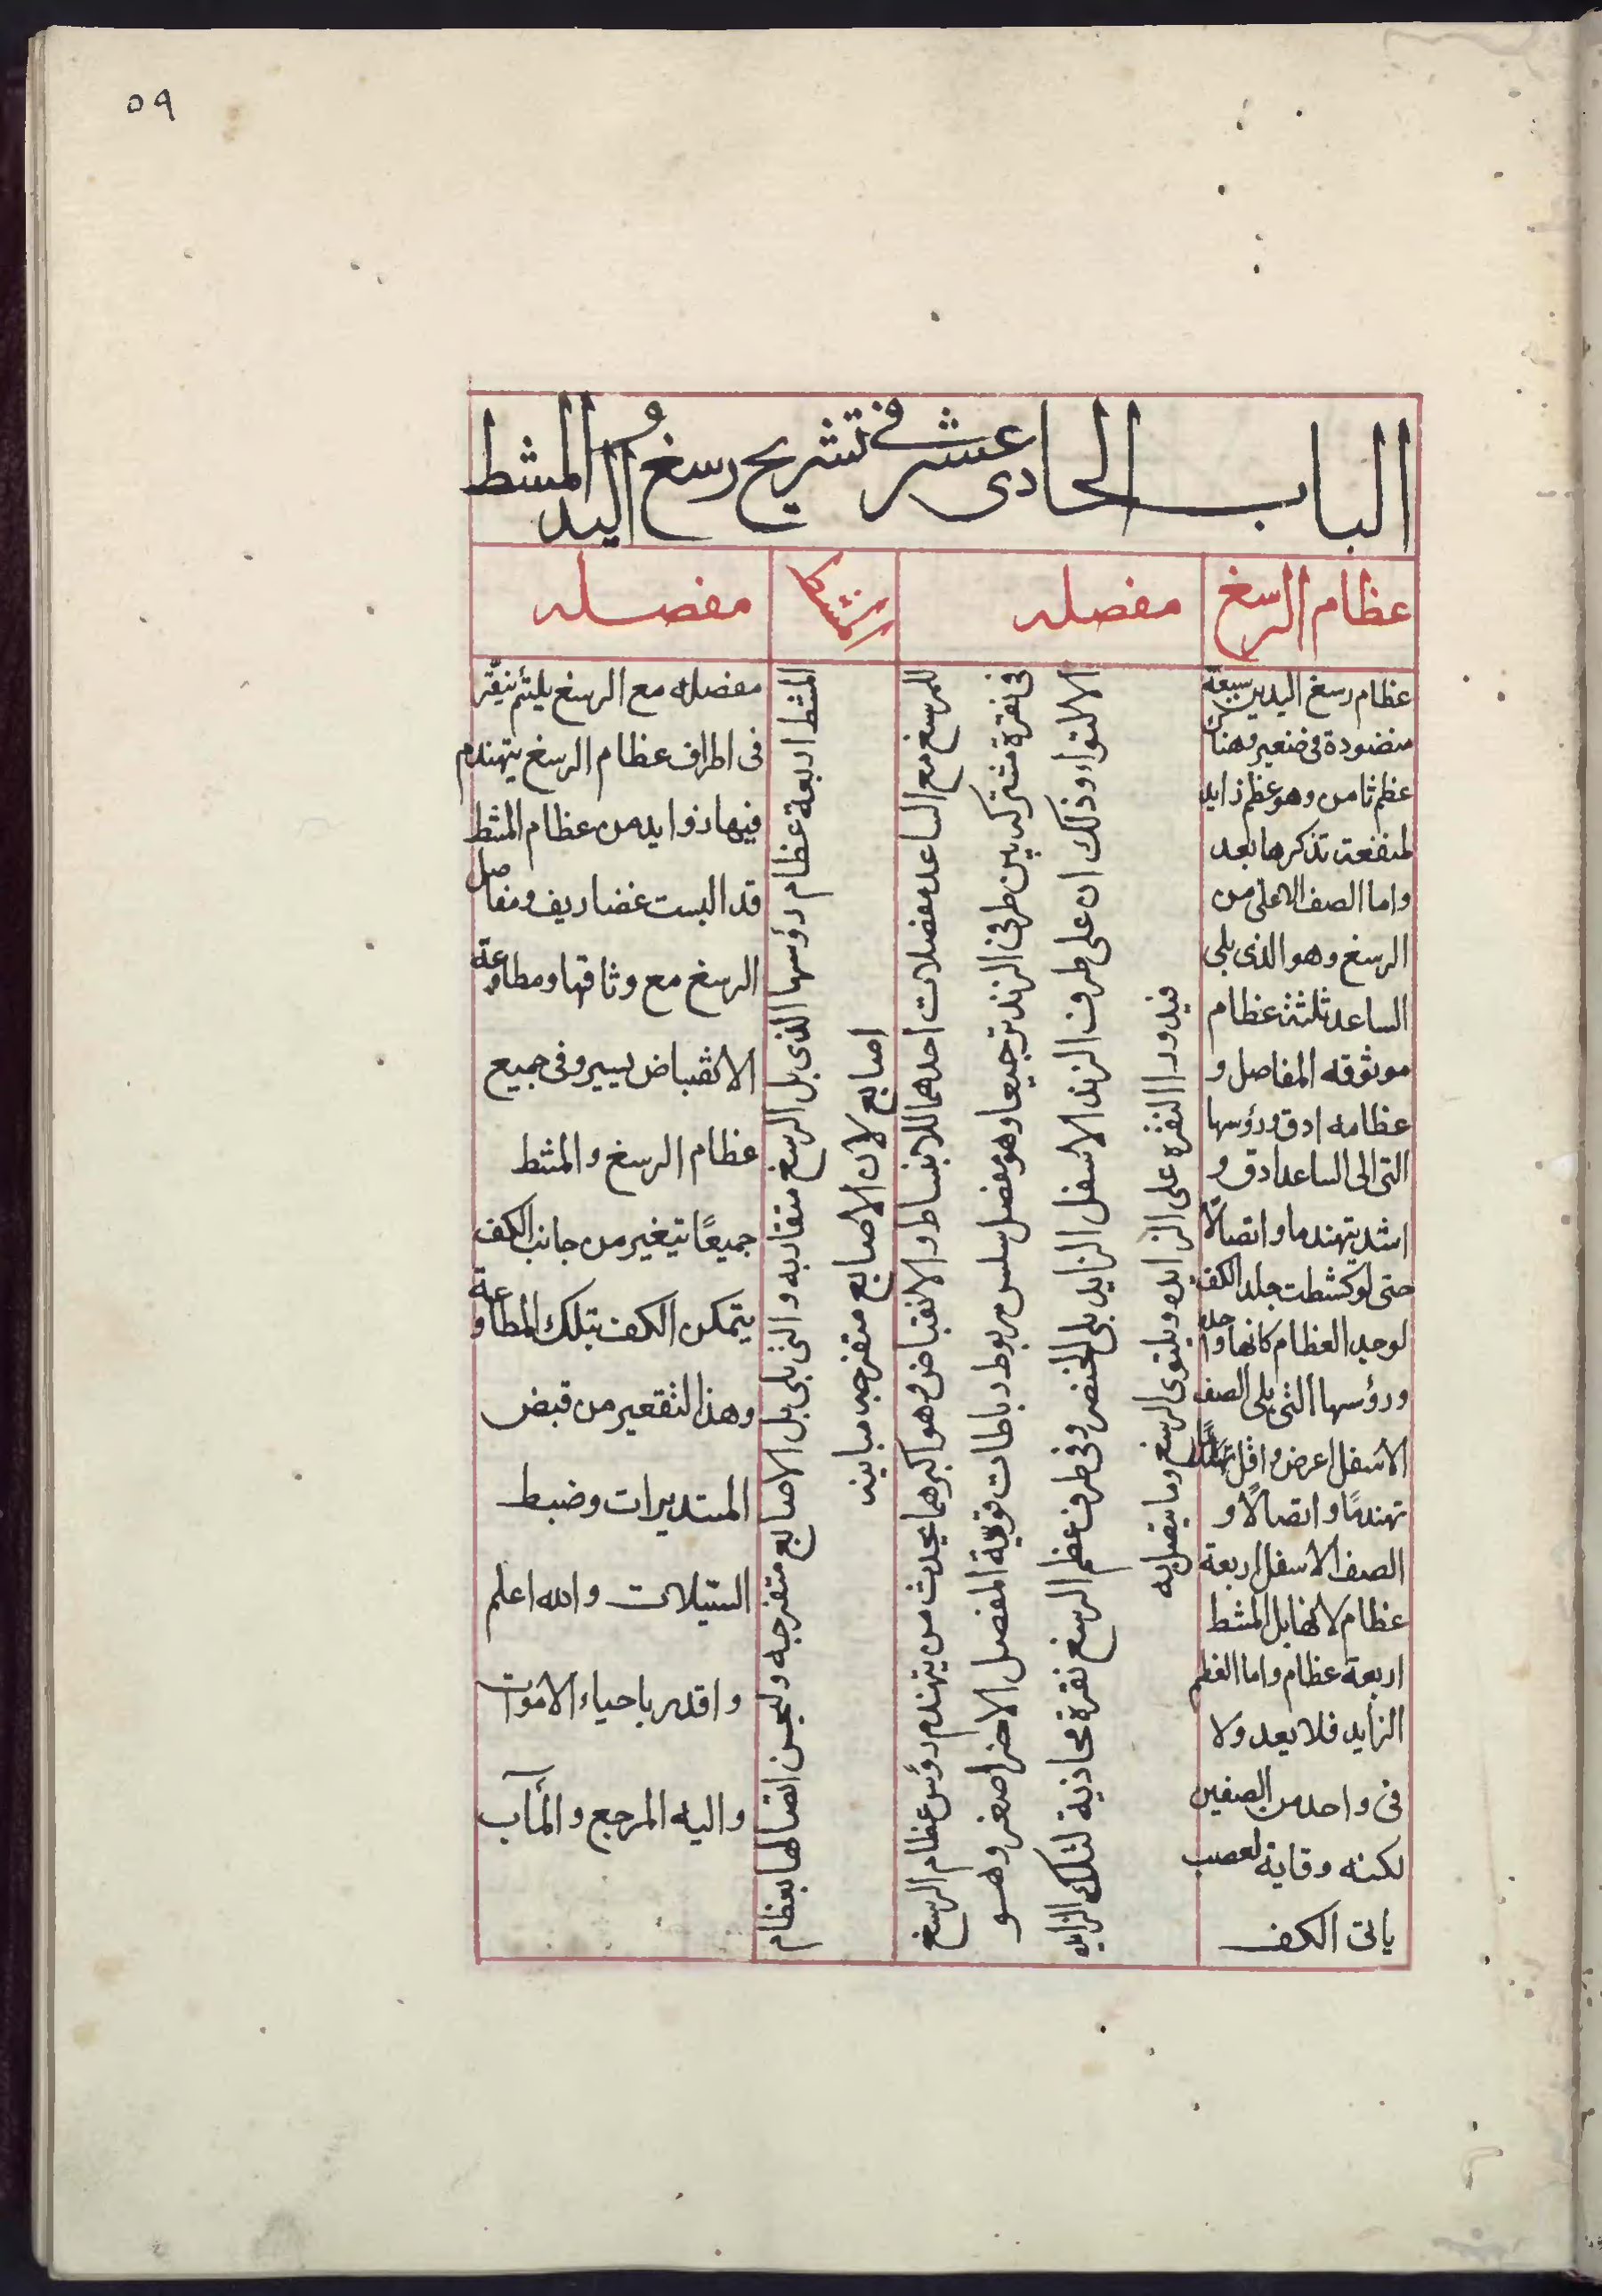 ٥٩
الباب الحادى عشر فى تشريح رسغ اليد و المشط
عظام الرسغ
عظام رسغ اليدين سبعة
منضودة فى صنفين وهناك
عظم ثامن وهو عظم زايد
لمنفعة تذكرها بعد
واما الصف الاعلى من
الرسغ وهو الذى يلى
الساعد ثلثة عظام
موثوقه المفاصل و
عظامه ادق ورؤسها
التى الى الساعد ادق و
اشد تهندما واتصالًا
حتى لو كشطت جلد الكف
لوجد العظام كانها واحد
ورؤسها التى يلى الصف
الاسفل اعرض واقل
تهندمًا واتصالًا و
الصف الاسفل اربعة
عظام لانها بل المشط
اربعة عظام واما العظم
الزايد فلا يعد ولا
فى واحد من الصفين
لكنه وقاية لعصب
ياتى الكف
مفصله
للرسغ مع الساعد مفصلات احدهما للانبساط والانقباض وهو اكبرهما يحدث من تهندم رؤس عظام الرسغ
فى نقرة مشتركه بين طرفى الزندتر جيعا وهو مفصل سلس مربوط رباطات قوية المفصل الاخر اصغر وهو
الالتواء وذلك ان على طرف الزند الاسفل الزايد يلى الخنصر وفى طرف عظم الرسغ نقرة محاذية لتلك الزايده
فيدور النقره على الزايده ويلتوى الرسغ وما يتصل به
المشط
المشط اربعة عظام رؤسها الذى يل الرسغ متقاربه والتى يلى بل الاصابع متفرجه وليحسن اتصالها بعظام
اصابع لان الاصابع متفرجه مباينه
مفصله
مفصله مع الرسغ يلتئم بنقر
فى اطراف عظام الرسغ يتهندم
فيها زوايد من عظام المشط
قد البست غضاريف ومفاصل
الرسغ مع وثاقتها ومطاوعة
الانقباض يسير وفى جميع
عظام الرسغ والمشط
جميعًا تيغير من جانب الكف
يتمكن الكف بتلك المطاوعة
وهذا التقعير من قبض
المستديرات وضبط
السيلات والله اعلم
واقدر باحياء الاموات
واليه المرجع والمآب